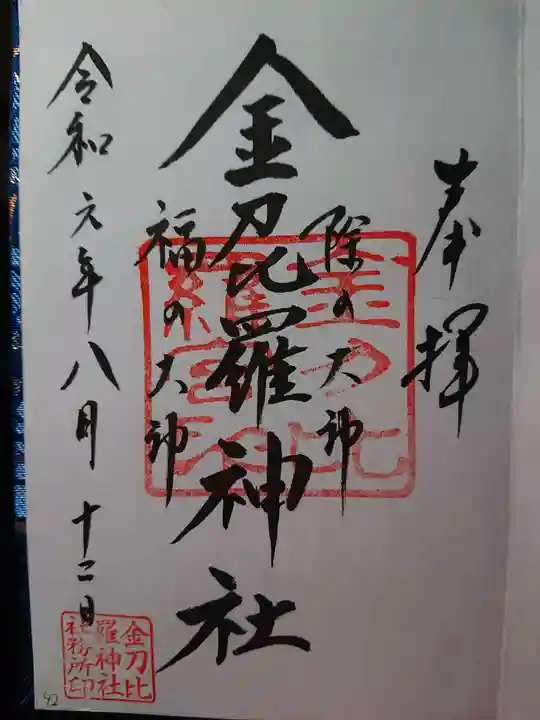 奉拝
除の大神
金刀比羅神社
福の大神
令和元年八月十二日
金刀比
羅神社
社務所印
42